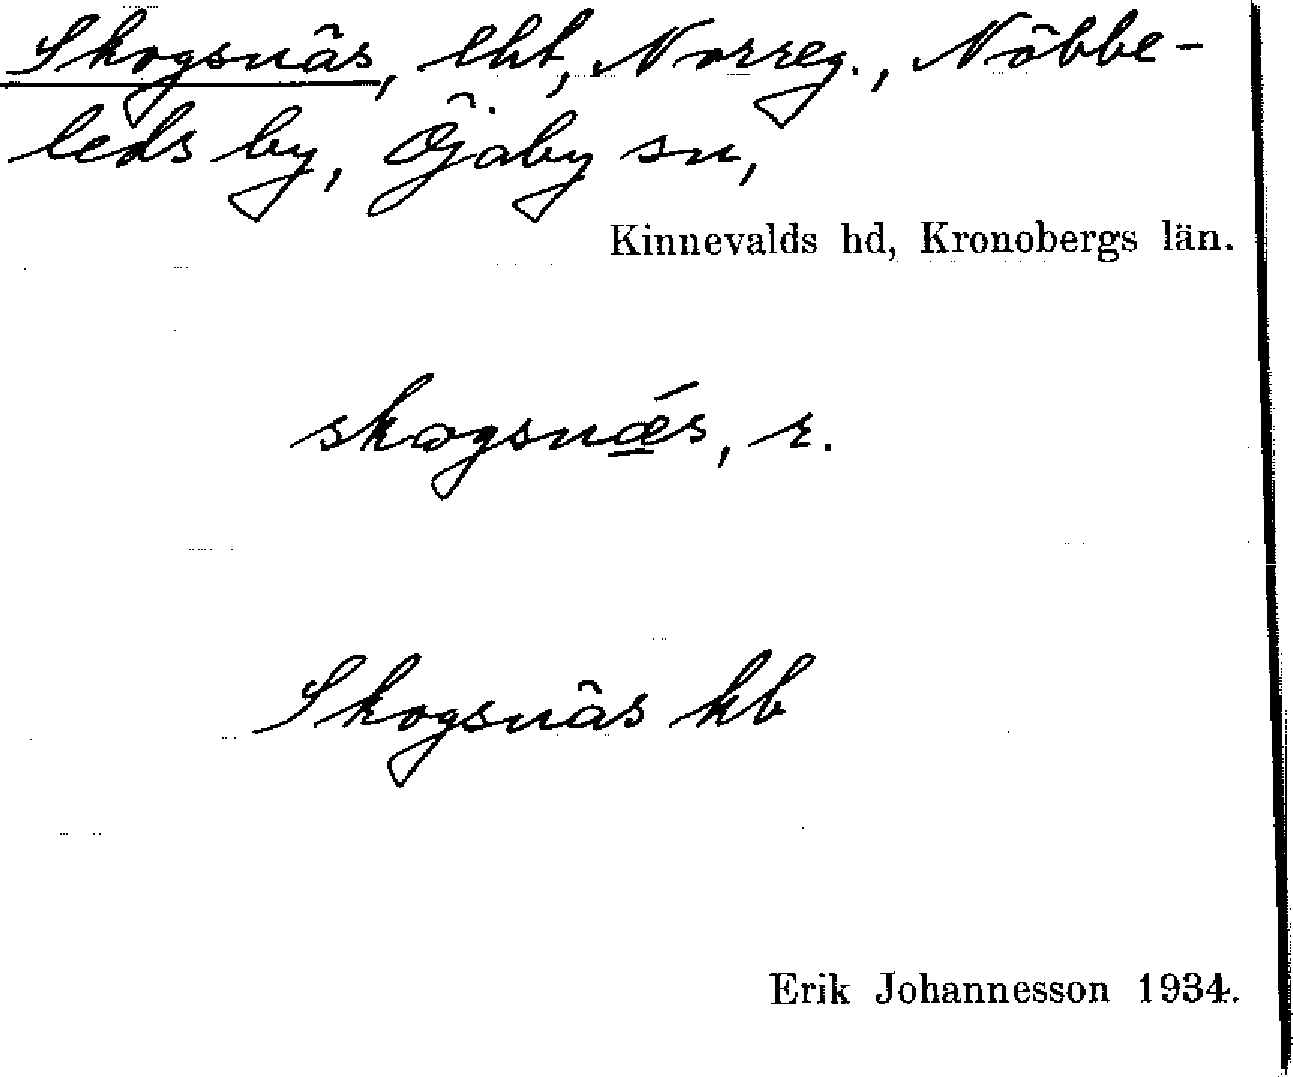 Skogsnäs, lht, Norreg., Nöbbe-
leds by, Öjaby sn,
Kinnevalds hd, Kronobergs län.
skogsnǽ̲s, r.
Skogsnäs kb
Erik Johannesson 1934.